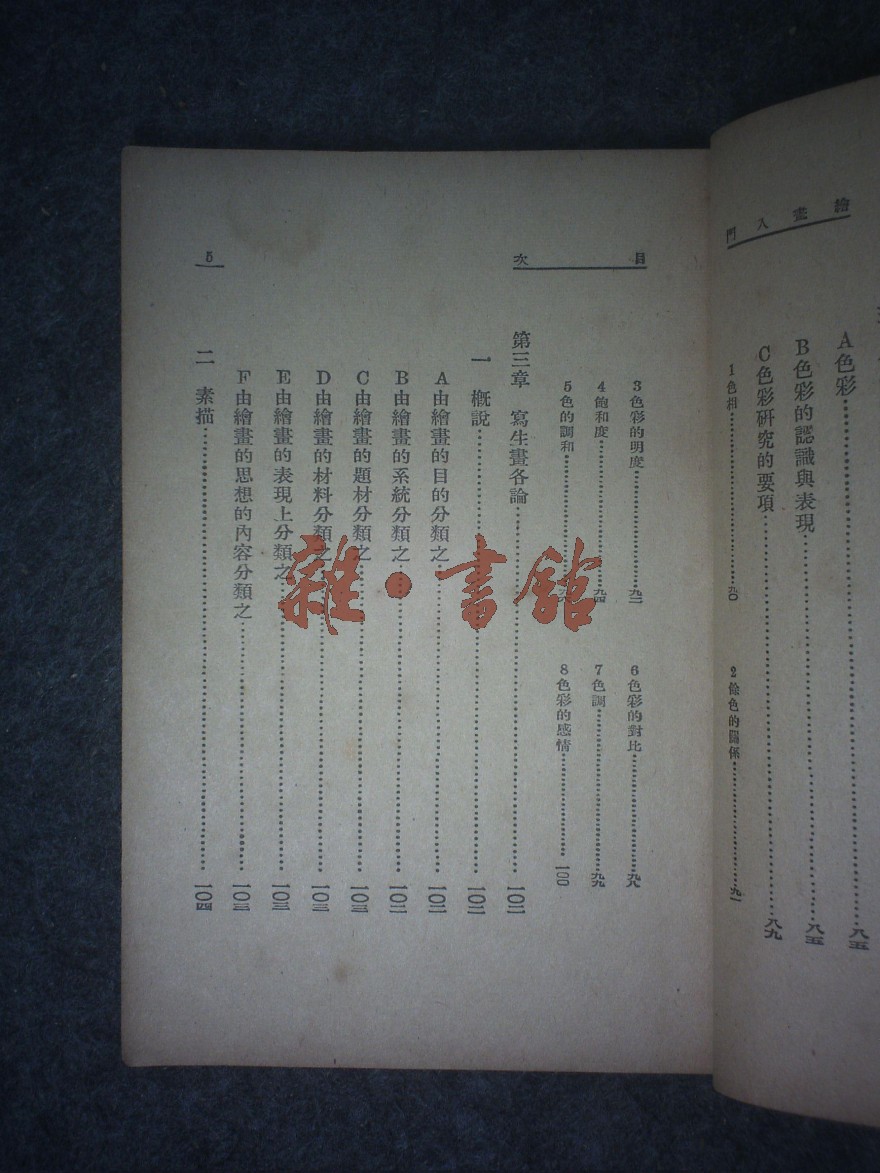 繪畫入門
A色彩……八五
B色彩的認識與表現……八五
C色彩研究的要項……八九
1色相……九〇
2餘色的關係……九一
目次
3色彩的明度……九二
6色彩的對比……九八
4飽和度……九四
7色調……九九
5色的調和……
8色彩的感情……一〇〇
第三章 寫生畫各論……一〇二
一 概說……一〇二
A由繪畫的目的分類之……一〇二
B由繪畫的系統分類之……一〇二
C由繪畫的題材分類之……一〇三
D由繪畫的材料分類之……一〇三
E由繪畫的表現上分類之……一〇三
F由繪畫的思想的內容分類之……一〇三
二 素描……一〇四
5
雜·書館